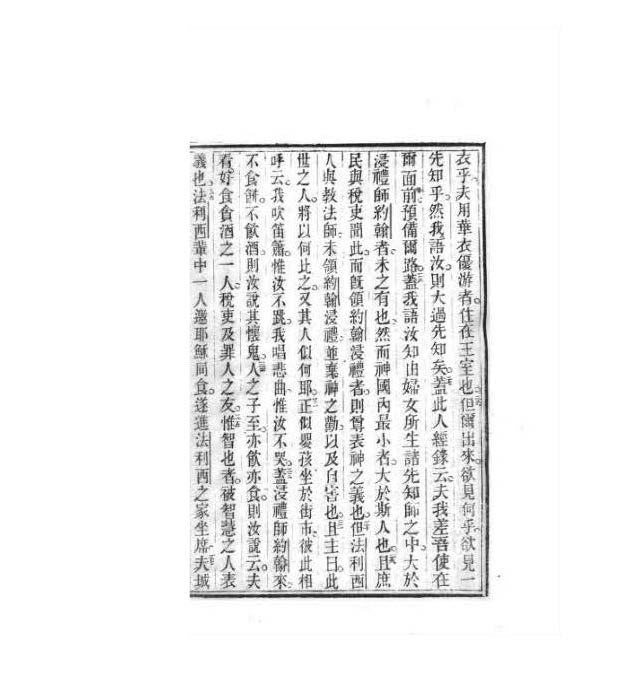 衣乎。夫用華衣優游者。住在王室也。但爾出來。欲見何乎。欲見一
先知乎。然我語汝。則大過先知矣。蓋此人經錄云。夫我差吾使在
爾面前。預備爾路。蓋我語汝知。由婦女所生諸先知師之中。大於
浸禮師約翰者。未之有也。然而神國內最小者。大於斯人也。且庶
民與稅吏聞此。而旣領約翰浸禮者。則尊表神之義也。但法利西
人與敎法師。未領約翰浸禮。並棄神之勸。以及自害也。且主曰。此
世之人。將以何比之。又其人似何耶。正似嬰孩坐於街市。彼此相
呼云。我吹笛簫。惟汝不跳。我唱悲曲。惟汝不哭。蓋浸禮師約翰來。
不食餅。不飲酒。則汝說其懷鬼。人之子至。亦飲亦食。則汝說云。夫
看好食貪酒之一人。稅吏及罪人之友。惟智也者。被智慧之人表
義也。法利西輩中一人邀耶穌同食。遂進法利西之家坐席。夫城